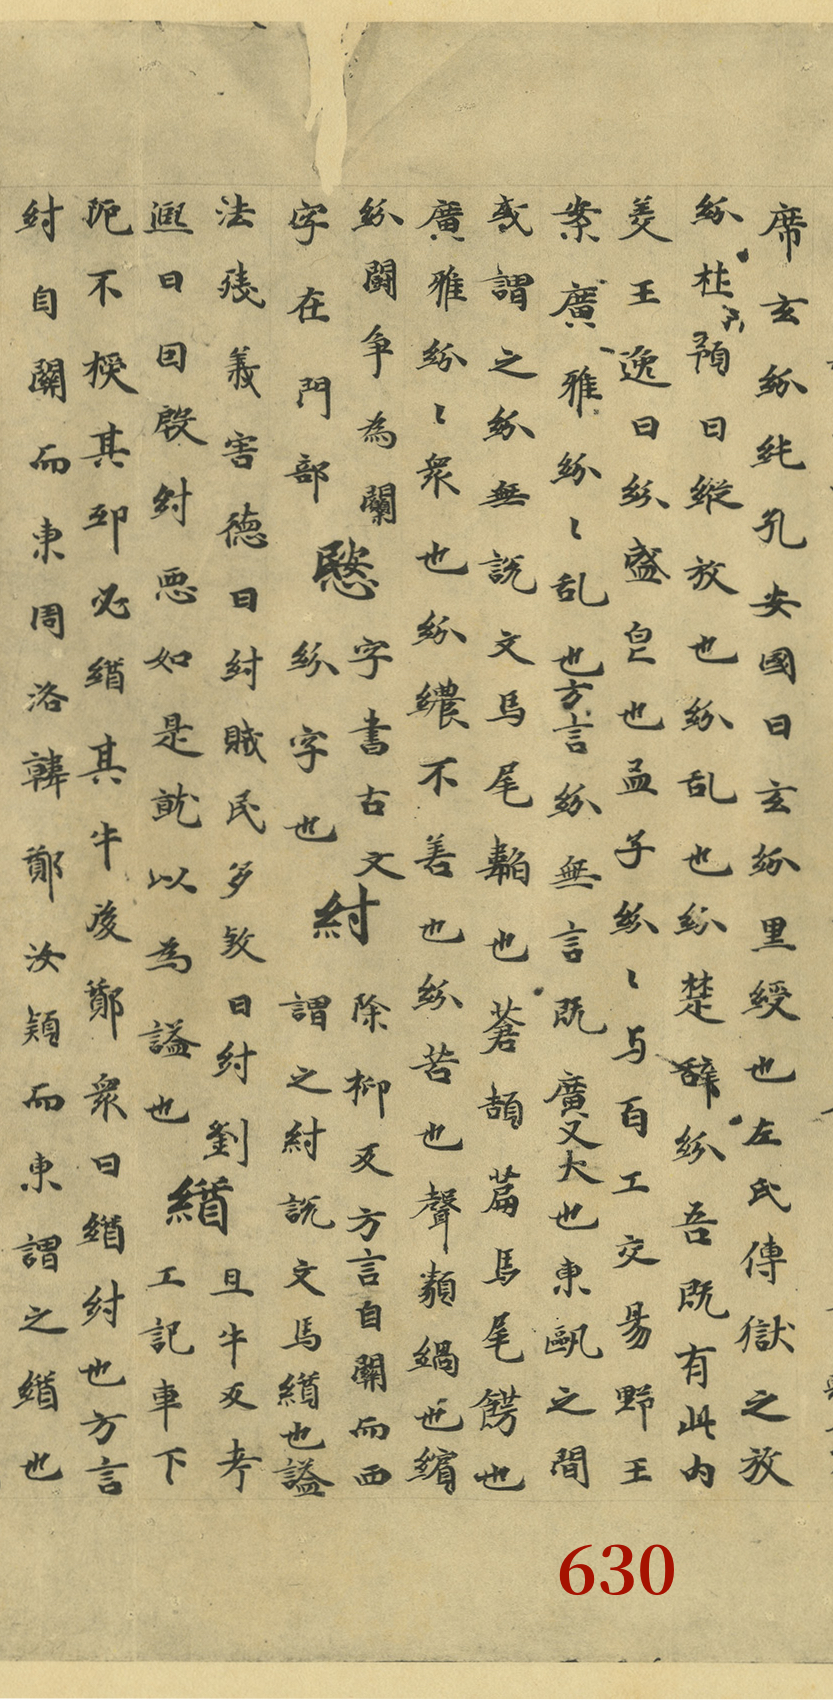 席玄紛純孔安國曰玄紛里綬也左氏傳獄之放
紛杜預曰縱放也紛乱也紛楚辞紛吾既有此内
羙王逸曰紛盛皃也孟子紛〻与百工交易野王
案廣雅紛〻乱也方言紛無言既廣又大也東甌之間
或謂之紛無說文馬尾䪜也蒼頡篇馬尾餝也
廣雅紛〻衆也紛繷不善也紛苦也聲類緺也繽
紛鬪争為䦨字在門部
慜字書古文紛字也
紂除柳反方言自關而西謂之紂說文馬緧也謚
法殘義害德曰紂賊民多敓曰紂劉
熈曰因殷紂惡如是就以為謚也
緧且牛反考工記車下
阨不楥其邸必緧其牛後鄭衆曰緧紂也方言
紂自關而東周洛韓鄭汝潁而東謂之緧也
630